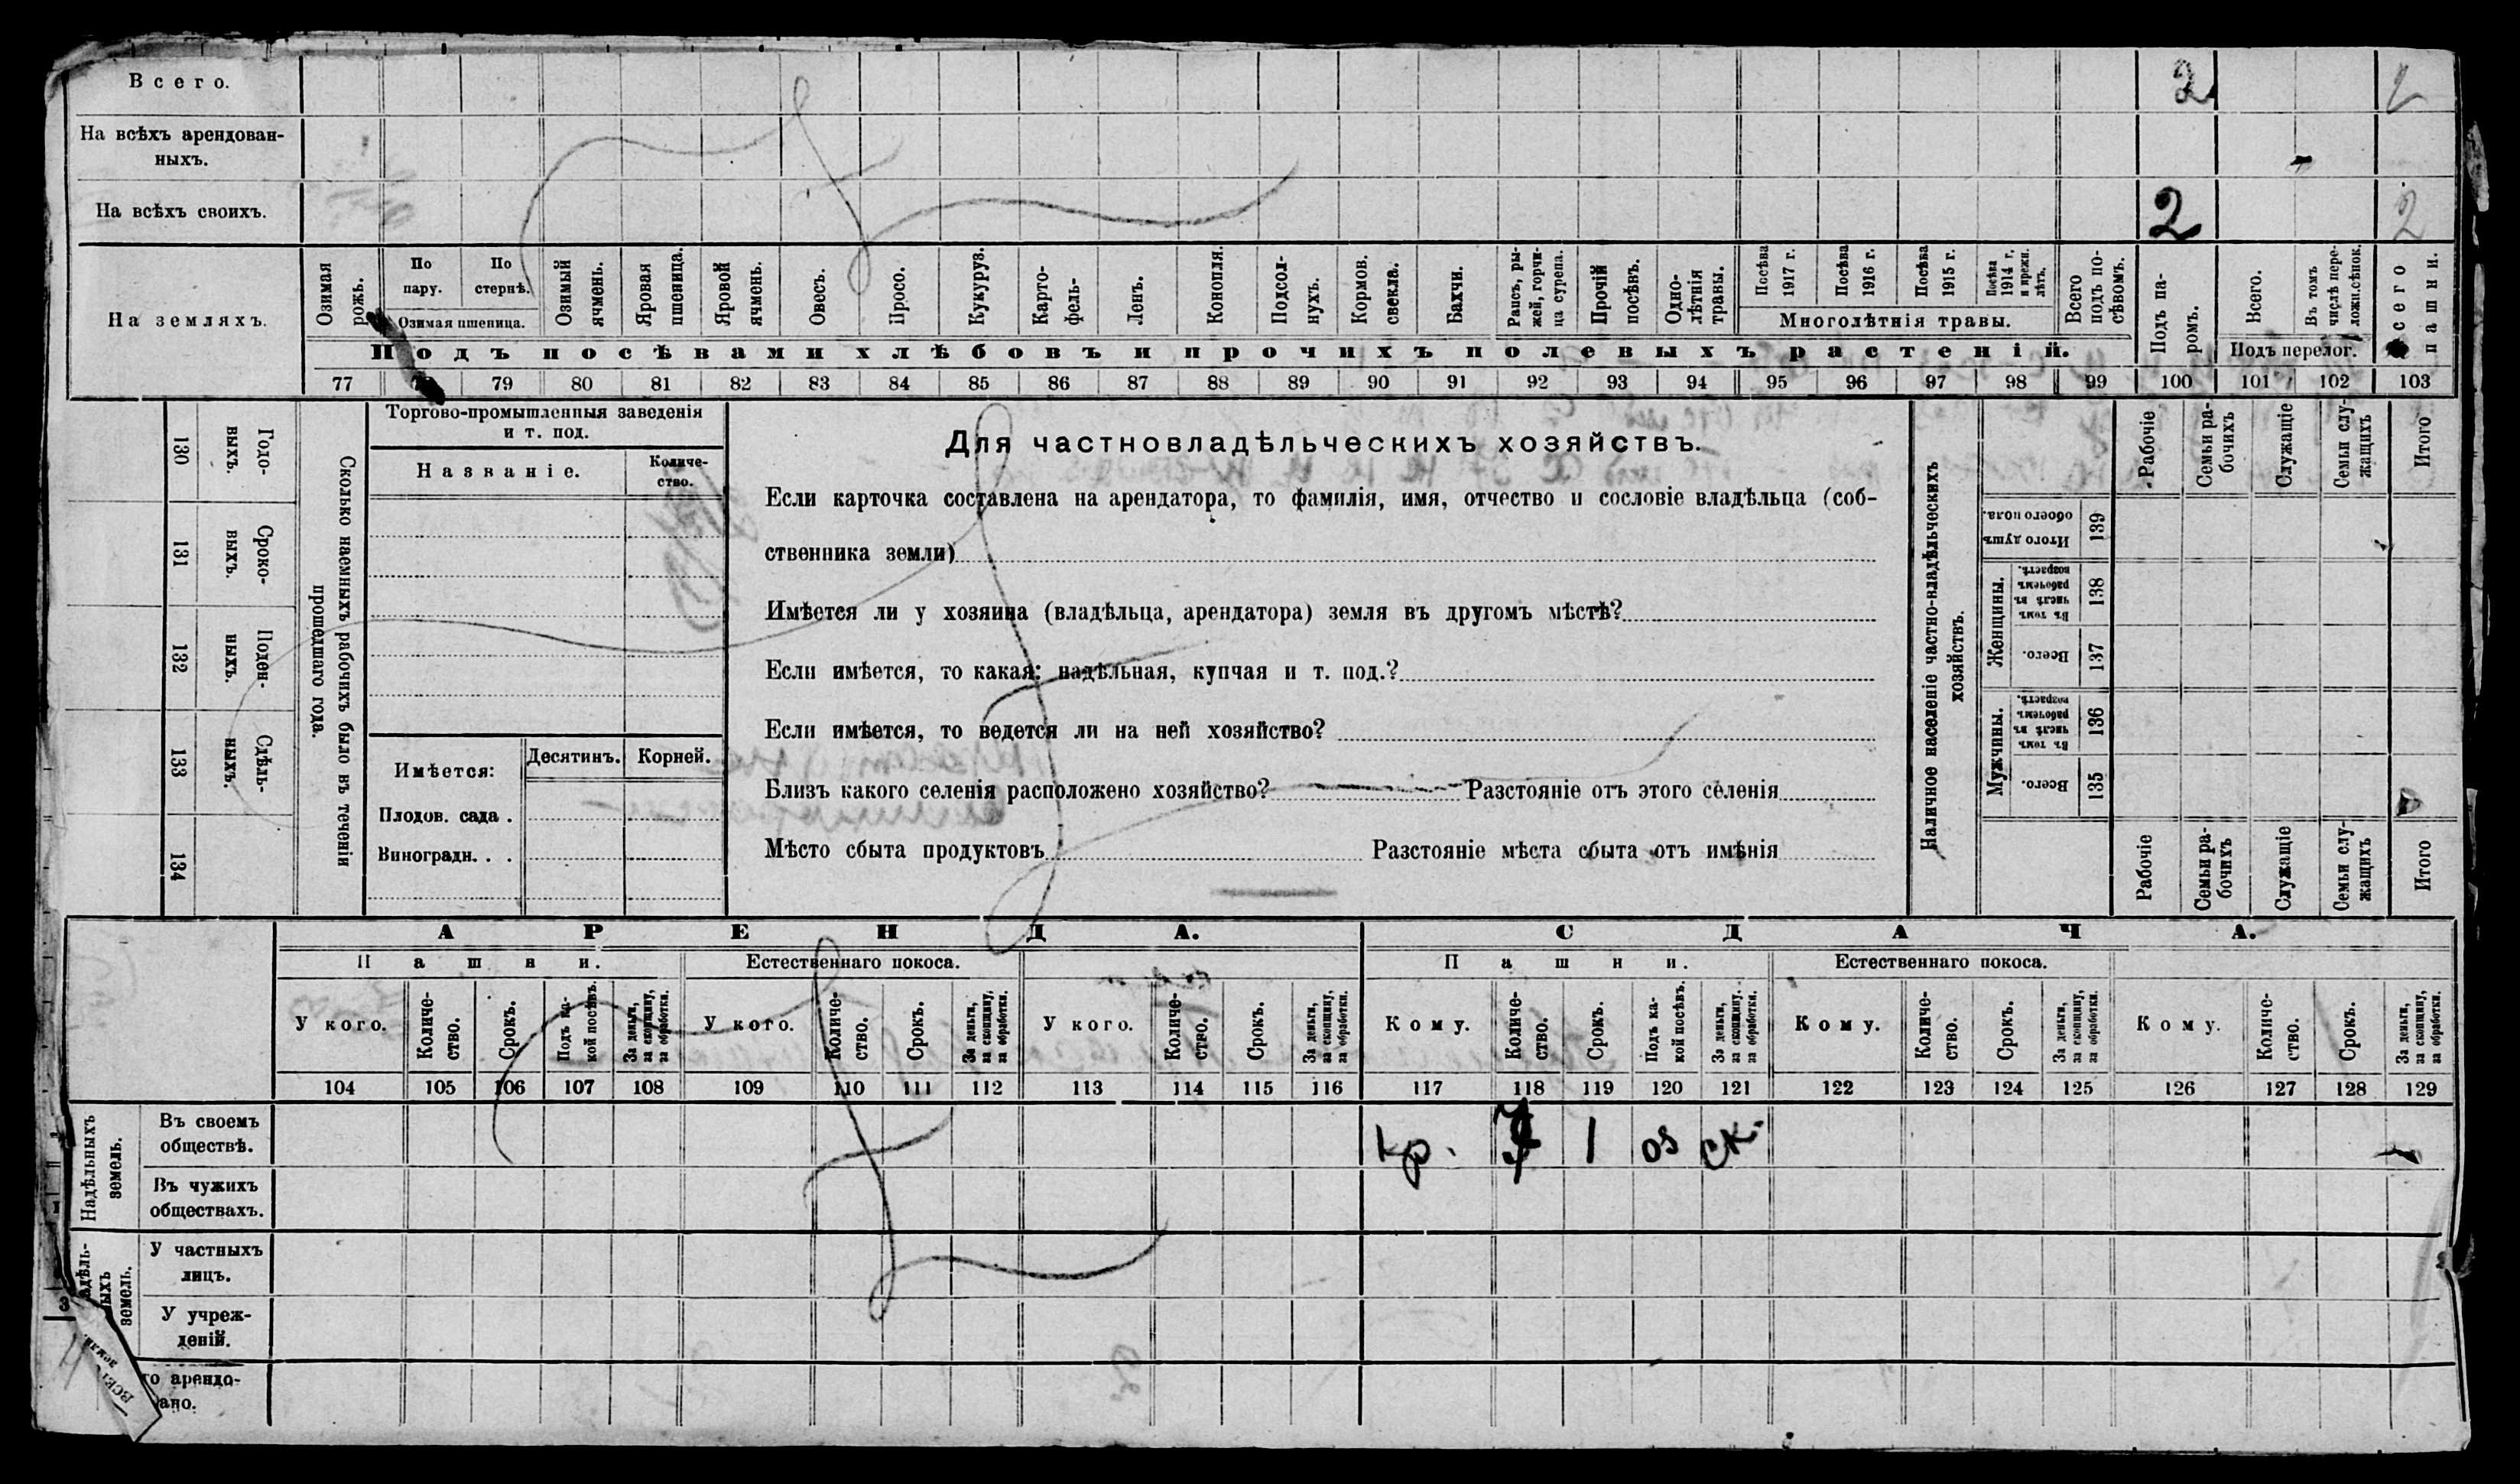 Всего. 2 2
На всѣхъ арендован-
ныхъ.
На всѣхъ своихъ. 2 2
На земляхъ.
Озимая рожь.
По пару.
По стернѣ.
Озимая пшеница.
Озимый ячмень.
Яровая пшеница.
Яровой ячмень.
Овесъ.
Просо.
Кукуруз.
Карто-
фель-
Ленъ.
Конопля.
Подсол-
нухъ.
Кормов. свекла.
Бахчи.
Рапсъ, ры-
жей, горчи-
ца сурепа.
Прочій посѣвъ.
Одно-
лѣтнія
травы.
Посѣва 1917 г.
Посѣва 1916 г.
Посѣва 1915 г.
Посѣва 1914 г. и прежн. лѣтъ.
Многолѣтнія травы.
Всего подъ по-
сѣвомъ.
Подъ па-
ромъ.
Всего.
Въ томъ числѣ пере-
ложн.сѣнок.
Подъ перелог.
Всего пашни.
Подъ посѣвами хлѣбовъ и прочихъ полевыхъ растеній.
77 79 80 81 82 83 84 85 86 87 88 89 90 91 92 93 94 95 96 97 98 99 100 101 102 103
130 Годо-
выхъ.
131 Сроко-
выхъ.
132 Поден-
ныхъ.
133 Сдѣль-
ныхъ.
134
Сколько наемныхъ рабочихъ было въ теченіи
прошедшаго года.
Торгово-промышленныя заведенія
и т. под.
Названіе.
Количе-
ство.
Имѣется:
Десятинъ. Корней.
Плодов. сада .
Виноградн. . .
Для частновладѣльческихъ хозяйствъ.
Если карточка составлена на арендатора, то фамилія, имя, отчество и сословіе владѣльца (соб-
ственника земли)
Имѣется ли у хозяина (владѣльца, арендатора) земля въ другомъ мѣстѣ?
Если имѣется, то какая: надѣльная, купчая и т. под.?
Если имѣется, то ведется ли на ней хозяйство?
Близъ какого селенія расположено хозяйство? Разстояніе отъ этого селенія
Мѣсто сбыта продуктовъ Разстояніе мѣста сбыта отъ имѣнія
Наличное населеніе частно-владѣльческихъ
хозяйствъ.
Рабочіе
Семьи ра-
бочихъ
Служащіе
Семьи слу-
жащихъ
Итого
Итого душъ обоего пола. 139
Женщины.
Въ томъ числѣ въ рабочемъ возрастѣ. 138
Всего. 137
Мужчины.
Въ томъ числѣ въ рабочемъ возрастѣ. 136
Всего. 135
Рабочіе
Семьи ра-
бочихъ
Служащіе
Семьи слу-
жащихъ
Итого
АРЕНДА. СДАЧА.
Пашни. Естественнаго покоса. Пашни. Естественнаго покоса.
У кого. Количе-
ство. Срокъ. Подъ ка-
кой посѣвъ. За деньги, за скопщину, за обработки.
У кого. Количе-
ство. Срокъ. За деньги, за скопщину, за обработки.
У кого. Количе-
ство. Срокъ. За деньги, за скопщину, за обработки.
Кому. Количе-
ство. Срокъ. Подъ ка-
кой посѣвъ. За деньги, за скопщину, за обработки.
Кому. Количе-
ство. Срокъ. За деньги, за скопщину, за обработки.
Кому. Количе-
ство. Срокъ. За деньги, за скопщину, за обработки.
104 105 106 107 108 109 110 111 112 113 114 115 116 117 118 119 120 121 122 123 124 125 126 127 128 129
Надѣльныхъ
земель.
Въ своемъ
обществѣ.
кр. 1 оз ск.
Въ чужихъ
обществахъ.
адѣль-
ыхъ
земель.
У частныхъ
лицъ.
У учреж-
деній.
го арендо-
ано.